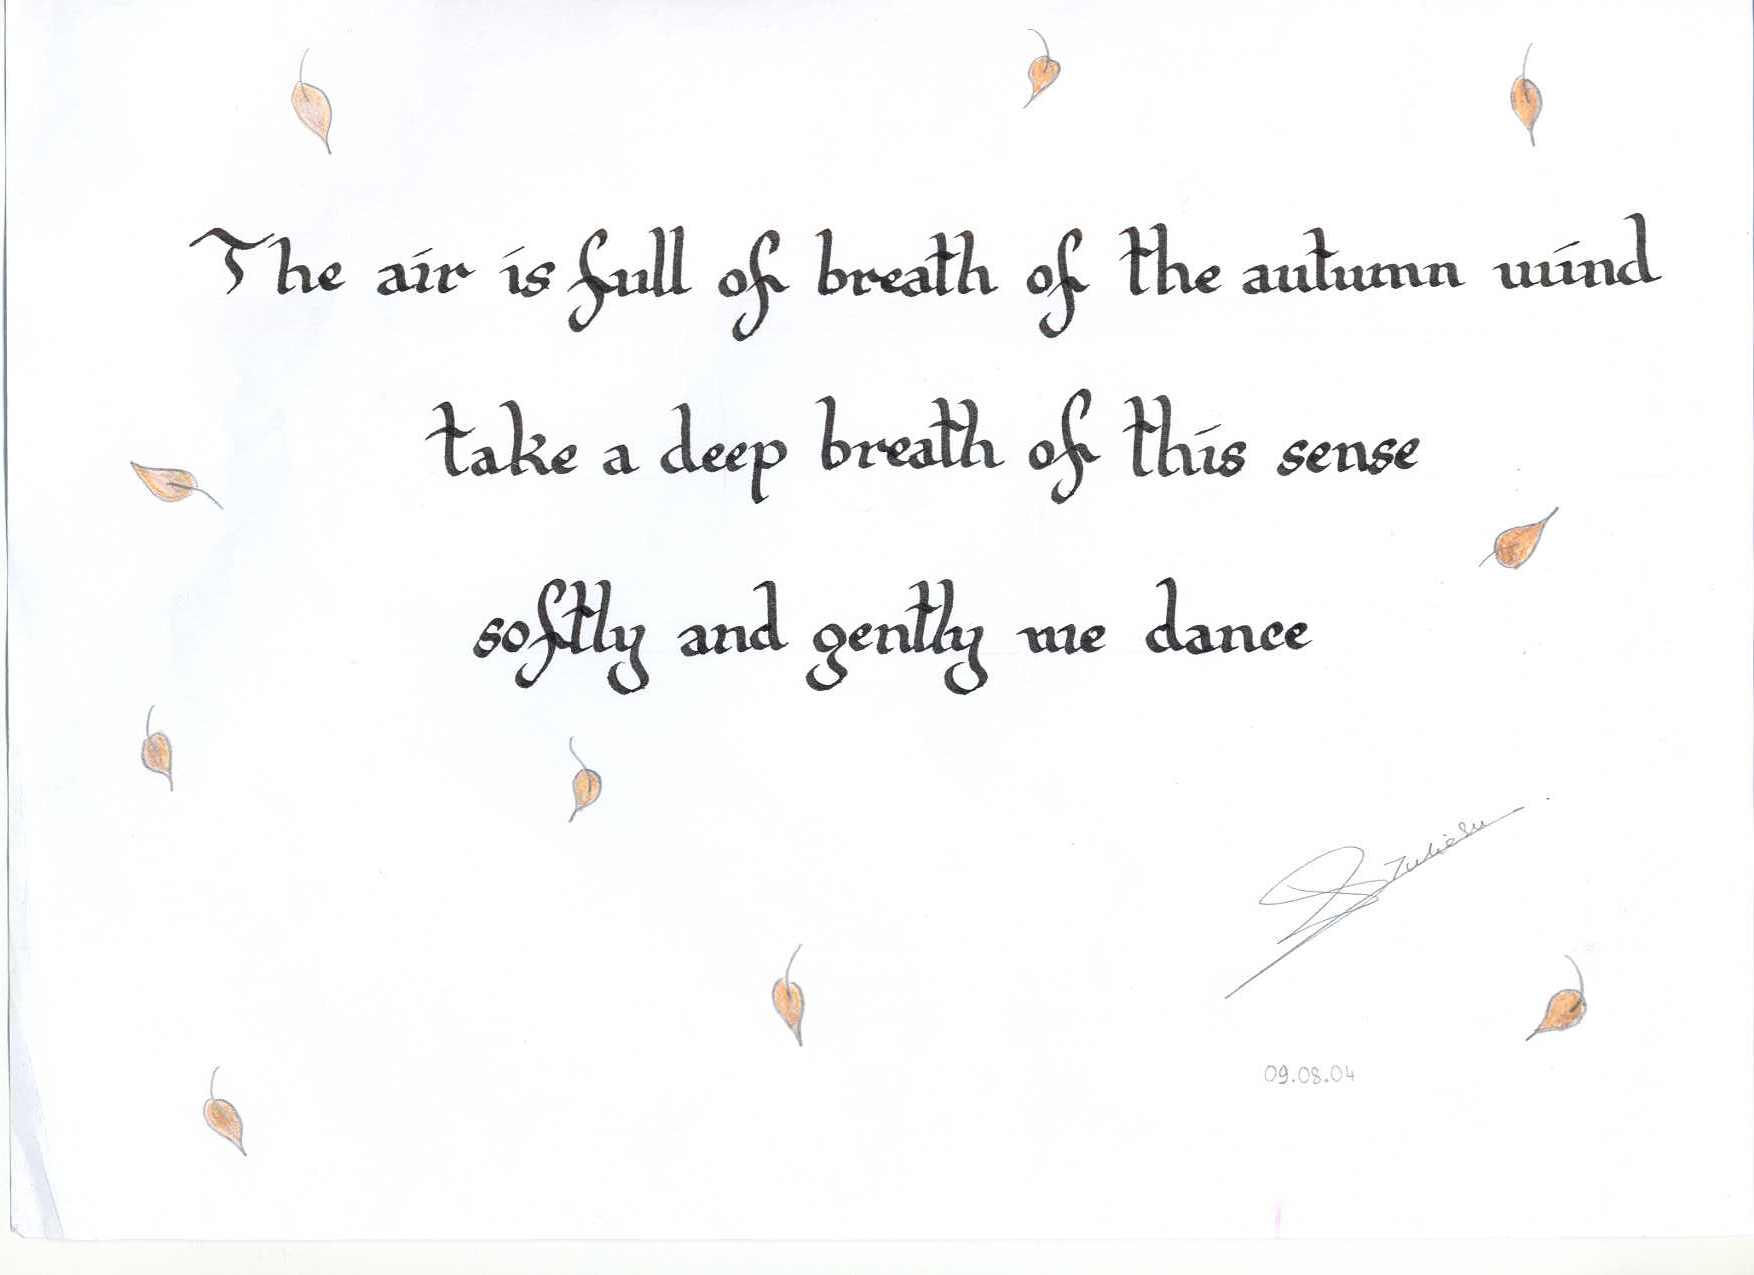 The air is full of breath of the autumn wind
take a deep breath of this sense
softly and gently me dance
09.08.04